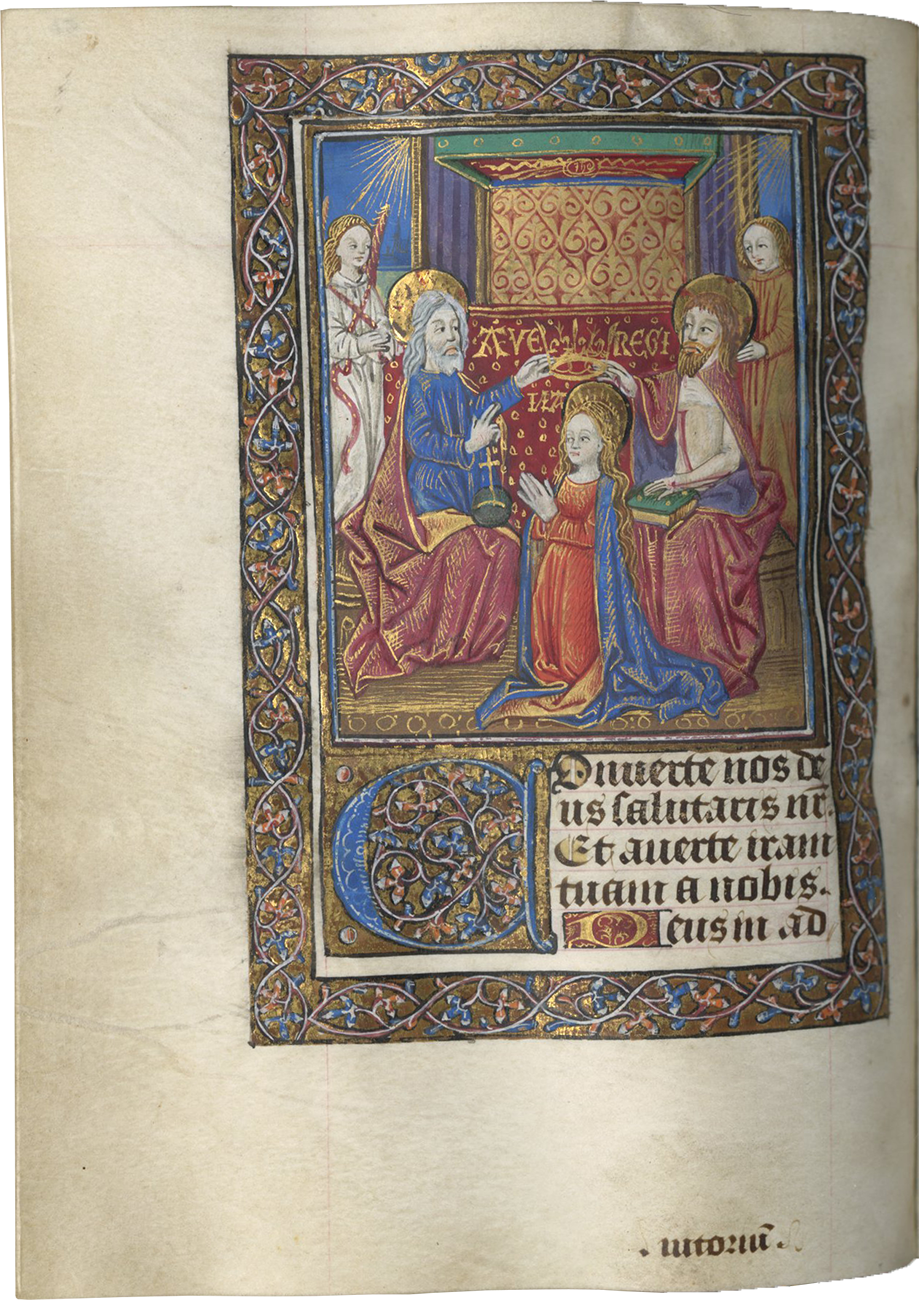 AVE REGI
NA
COnuerte nos de
us salutaris nr̄.
Et auerte iram
tuam a nobis.
Deus in ad
. iutoriū .